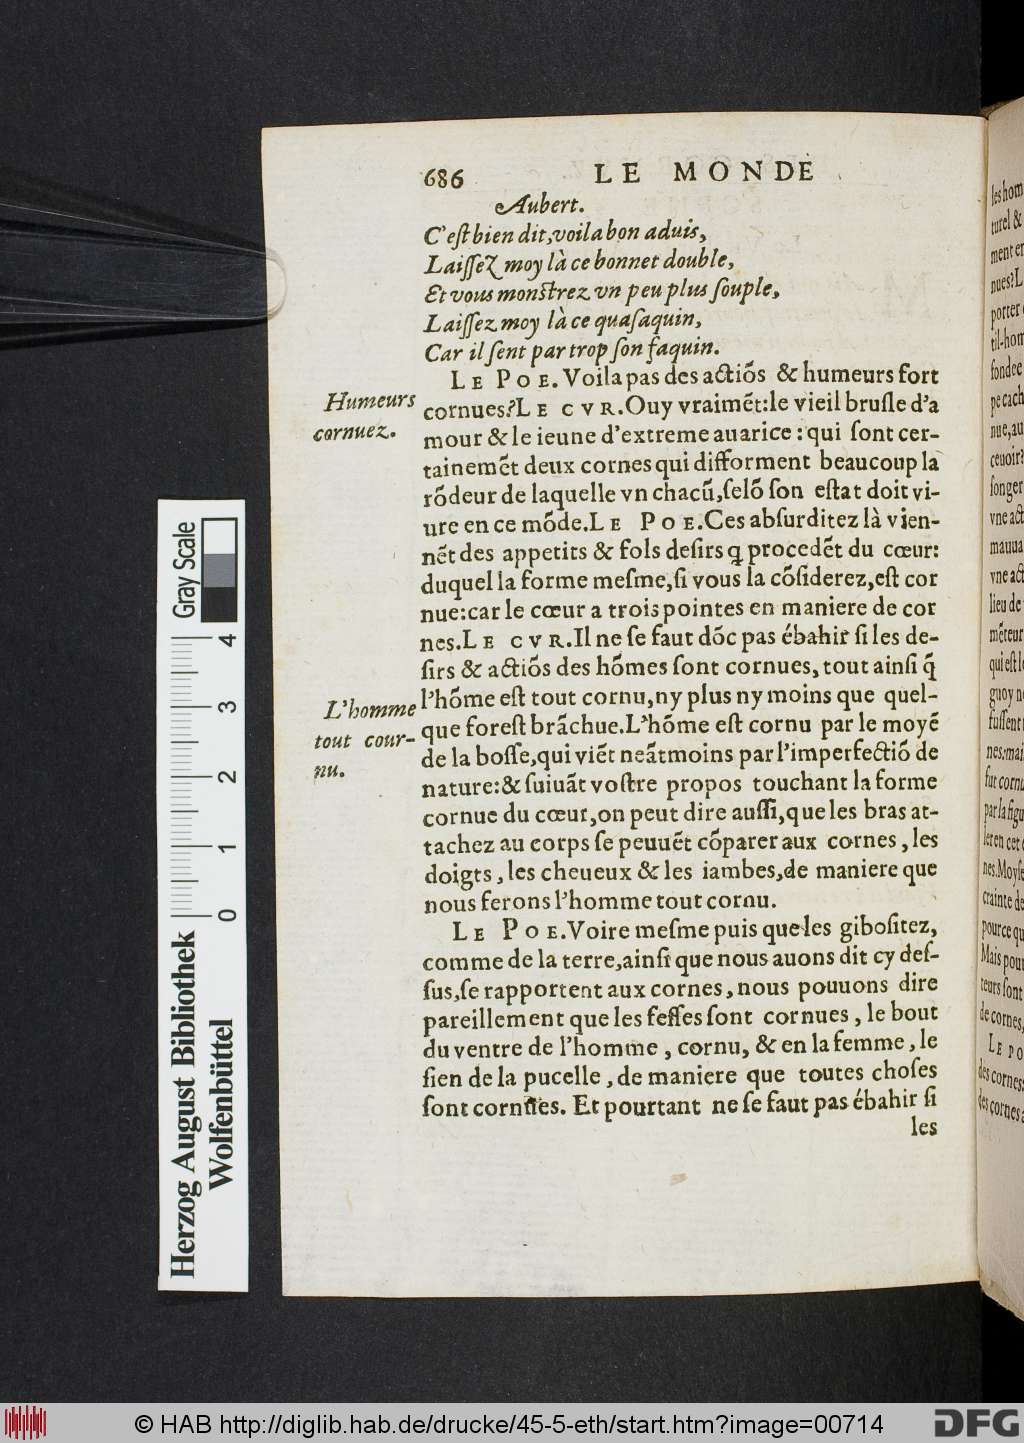 686 LE MONDE
Aubert.
C'eſt bien dit, voila bon aduis,
Laiſſez moy là ce bonnet double,
Et vous monſtrez vn peu plus ſouple,
Laiſſez moy là ce quaſaquin,
Car il ſent par trop ſon faquin.
LE POE. Voila pas des actiõs & humeurs fort
Humeurs
cornuez.
cornues? LE CVR. Ouy vraimẽt: le vieil bruſle d'a
mour & le ieune d'extreme auarice : qui ſont cer-
tainemẽt deux cornes qui difforment beaucoup la
rõdeur de laquelle vn chacũ, ſelõ ſon eſtat doit vi-
ure en ce mõde. LE POE. Ces abſurditez là vien-
nẽt des appetits & fols deſirs ꝗ procedẽt du cœur:
duquel la forme meſme, ſi vous la cõſiderez, eſt cor
nue: car le cœur a trois pointes en maniere de cor
nes. LE CVR. Il ne ſe faut dõc pas ébahir ſi les de-
ſirs & actiõs des hõmes ſont cornues, tout ainſi q̃
L'homme
tout cour-
nu.
l'hõme eſt tout cornu, ny plus ny moins que quel-
que foreſt brãchue. L'hõme eſt cornu par le moyẽ
de la boſſe, qui viẽt neãtmoins par l'imperfectiõ de
nature: & ſuiuãt voſtre propos touchant la forme
cornue du cœur, on peut dire auſſi, que les bras at-
tachez au corps ſe peuuẽt cõparer aux cornes, les
doigts, les cheueux & les iambes, de maniere que
nous ferons l'homme tout cornu.
LE POE. Voire meſme puis que les giboſitez,
comme de la terre, ainſi que nous auons dit cy deſ-
ſus, ſe rapportent aux cornes, nous pouuons dire
pareillement que les feſſes ſont cornues, le bout
du ventre de l'homme, cornu, & en la femme, le
ſien de la pucelle, de maniere que toutes choſes
ſont cornues. Et pourtant ne ſe faut pas ébahir ſi
les
les hom
turel &
ment en
nues? L
porter
til-hom
fondee
pe cach
nue, au
ceuoir?
ſonger
vne act
mauua
vne act
lieu de
mẽteur
qui eſt l
quoy n
fuſſent
nes: mai
fut cornu
par la figu
ler en cet
nes. Moyſe
crainte de
pource qu
Mais pour
teurs ſont
de cornes,
LE PO
des cornes:
des cornes
Gray Scale
0 1 2 3 4
Herzog August Bibliothek
Wolfenbüttel
© HAB http://diglib.hab.de/drucke/45-5-eth/start.htm?image=00714
DFG